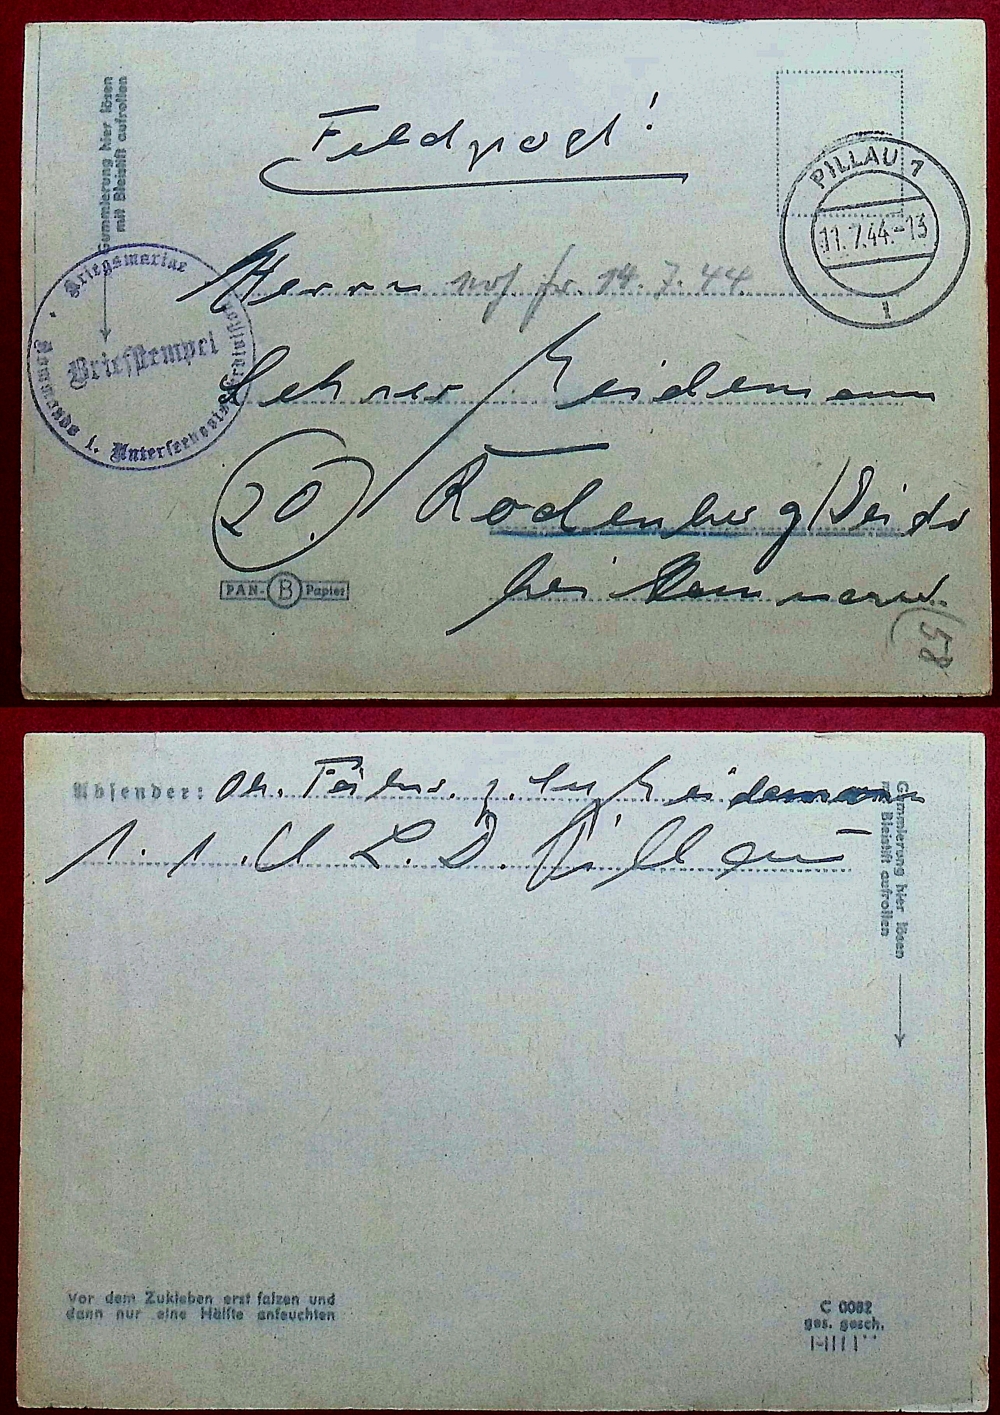 Gummierung hier lösen
mit Bleistift aufrollen
Feldpost!
PILLAU 1
11.7.44.-13
1
Kriegsmarine
Briefstempel
Herrn
14.7.44.
Lehrer Heidemann
(20)
Rodenberg/Deister
bei
PAN-B Papier
58
Absender: Ob. Heidemann
1. 1. U. L. D. Pillau
Gummierung hier lösen
mit Bleistift aufrollen
Vor dem Zukleben erst falzen und
dann nur eine Hälfte anfeuchten
C 0082
ges. gesch.